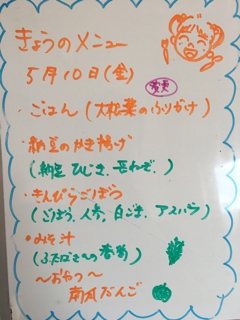 きょうのメニュー
5月10日(金)
・ごはん(大根葉のふりかけ)
・納豆のかき揚げ
(納豆 ひじき、長ねぎ、)
・きんぴらごぼう
(ごぼう、人参、白ごま、アスパラ)
・みそ汁
〜おやつ〜
南瓜だんご